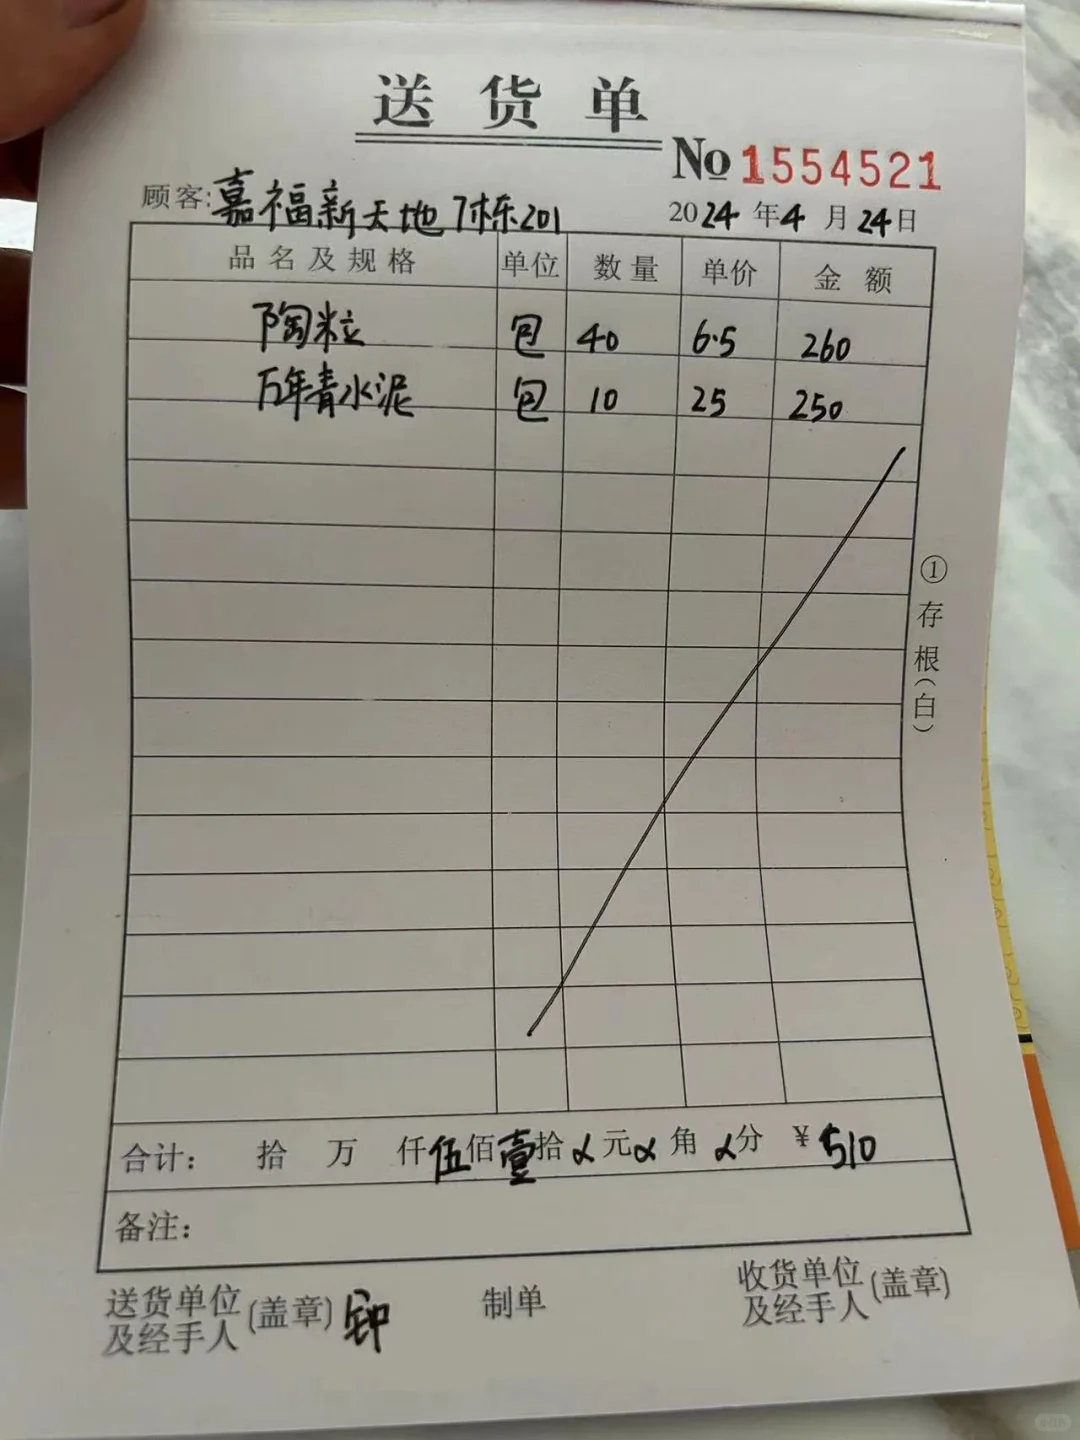 送货单
No 1554521
顾客:嘉福新天地7栋201 2024年4月24日
品名及规格 单位 数量 单价 金额
陶粒 包 40 6.5 260
万年青水泥 包 10 25 250
①存根(白)
合计: 拾 万 仟伍佰壹拾 元 角 分 ¥510
备注:
送货单位及经手人(盖章) 钟 制单 收货单位及经手人(盖章)